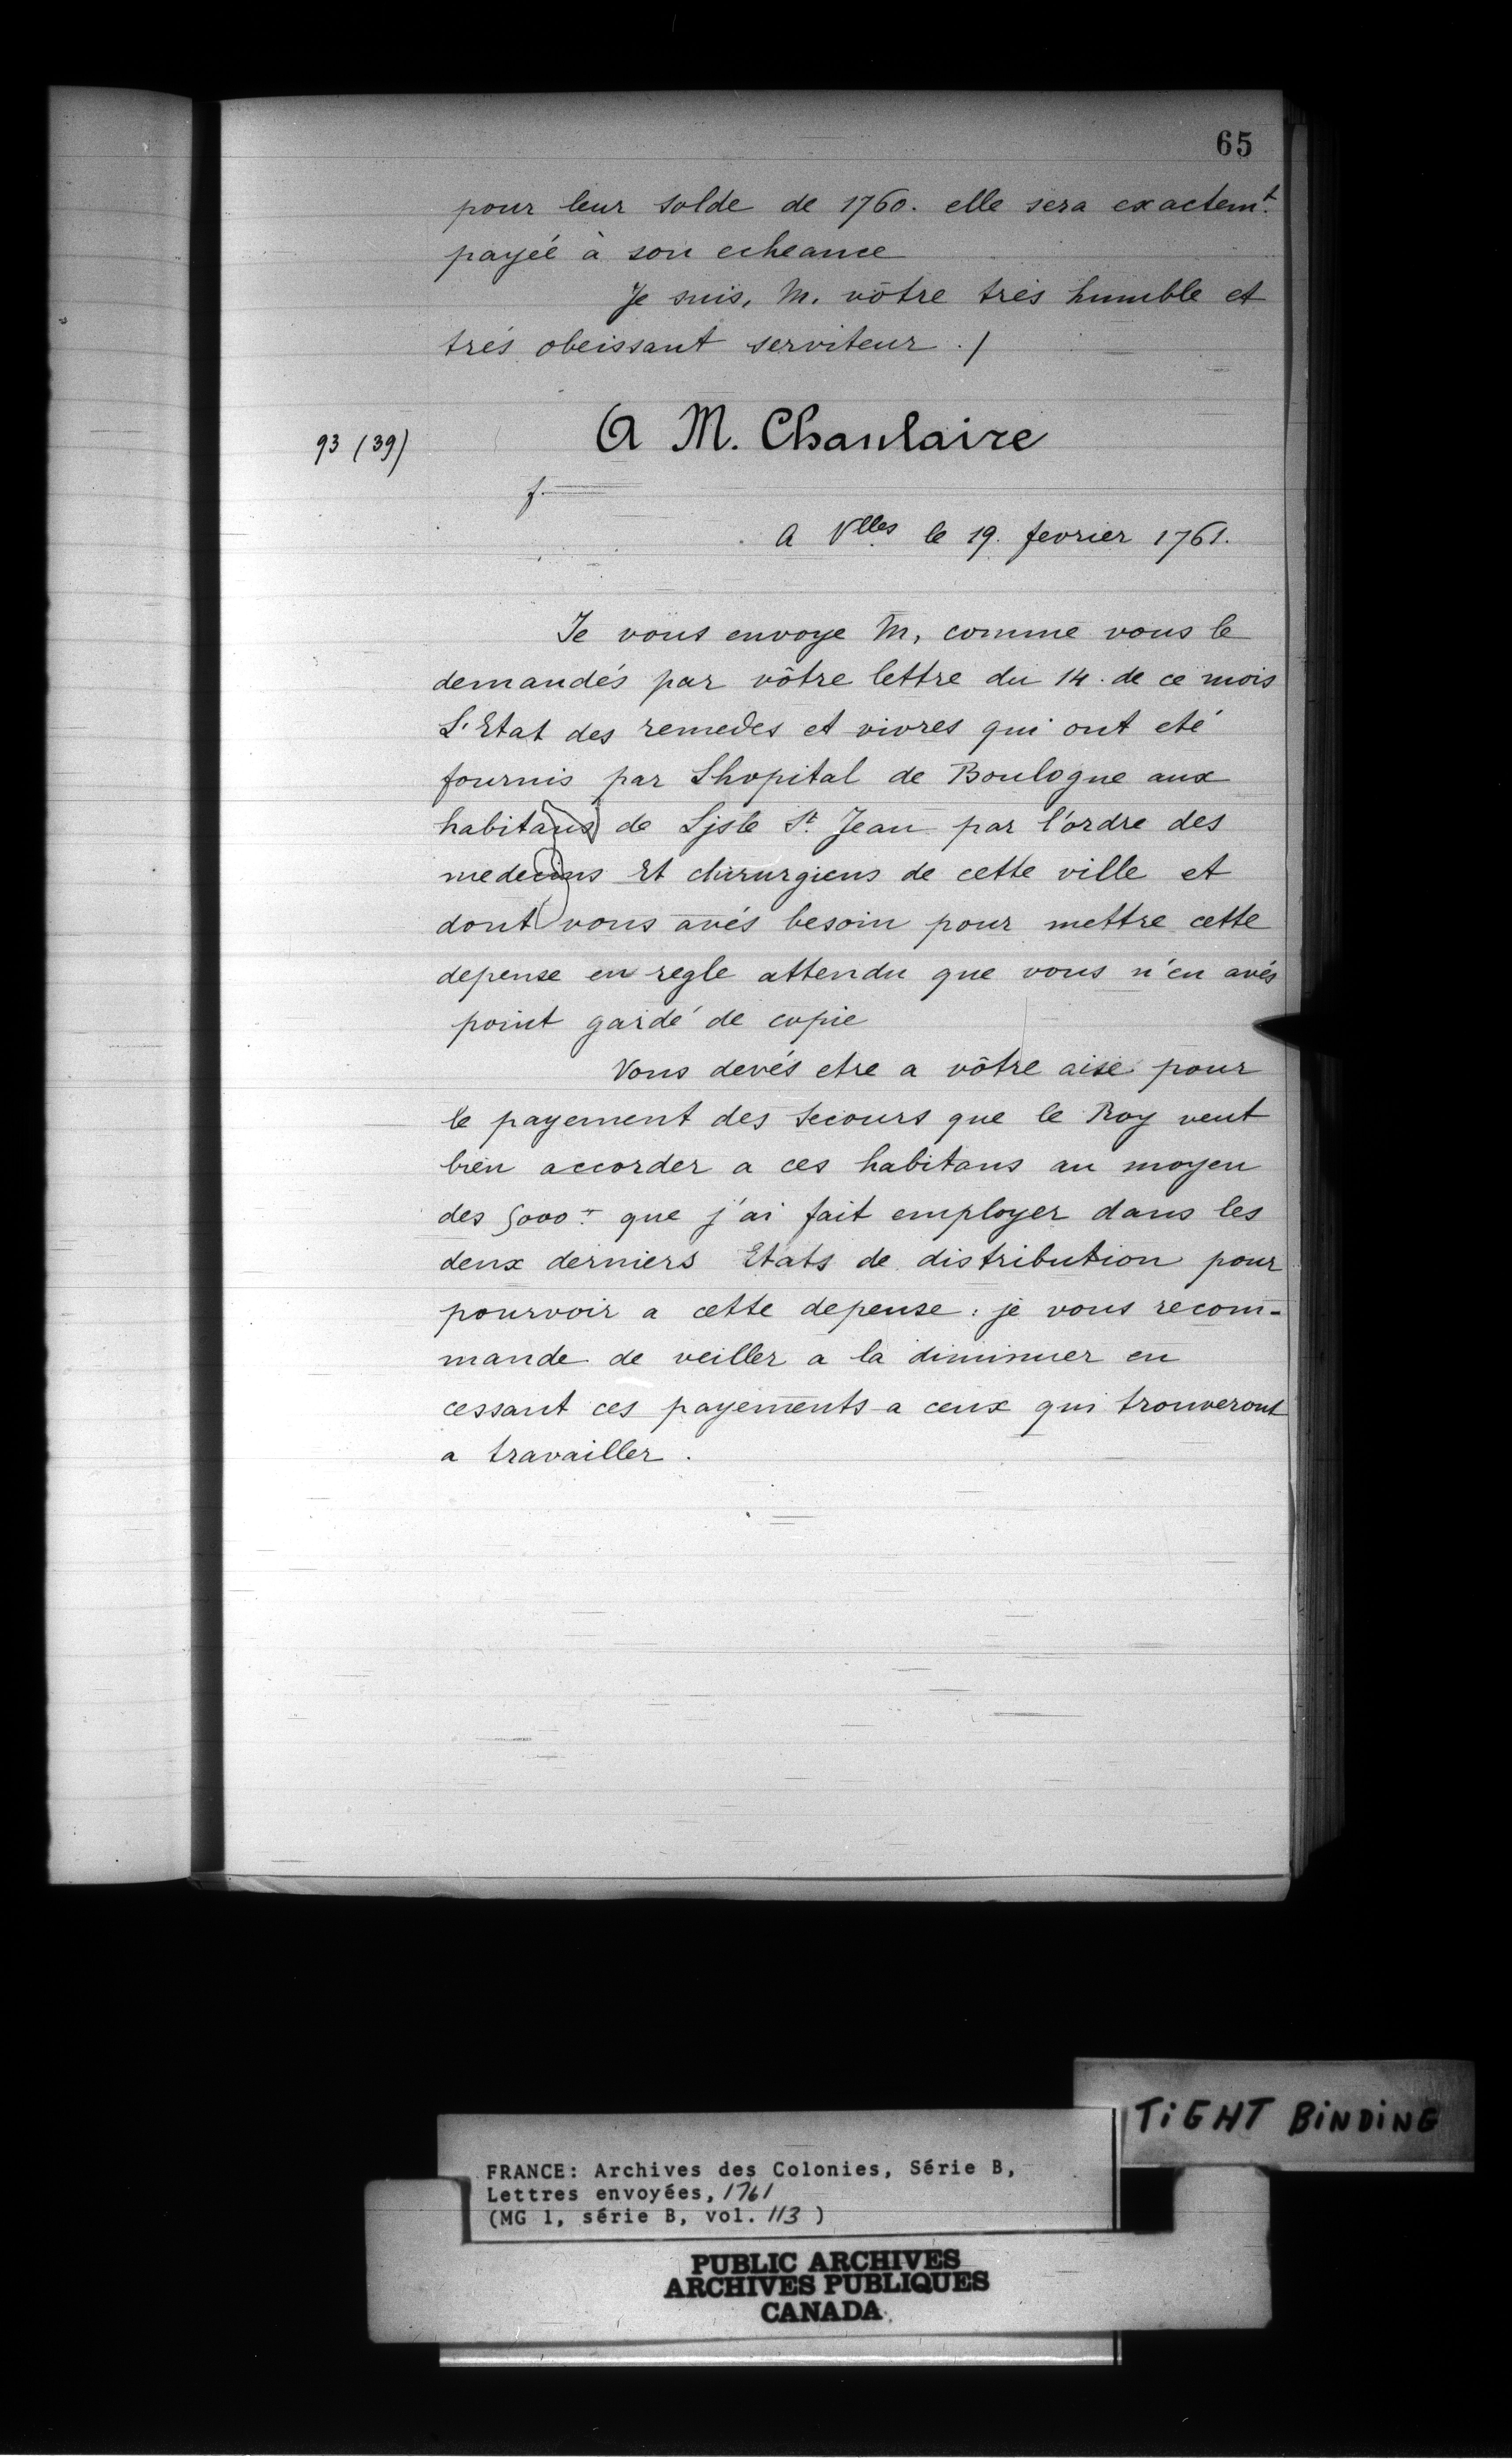 65
pour leur solde de 1760. elle sera exactemt.
payéé à son echeance
Je suis, M. vôtre trés humble et
trés obeissant serviteur ./
93 (39)
A M. Chanlaire
f.
A Vlles le 19. fevrier 1761.
Je vous envoye M, comme vous le
demandés par vôtre lettre du 14. de ce mois
L'Etat des remedes et vivres qui ont eté
fournis par Lhopital de Boulogne aux
habitans de Lisle St. Jean par l'ordre des
medecins Et chirurgiens de cette ville et
dont vous avés besoin pour mettre cette
depense en regle attendu que vous n'en avés
point gardé de copie
Vous devés etre a vôtre aise pour
le payement des secours que le Roy veut
bien accorder a ces habitans au moyen
des 5000tt que j'ai fait employer dans les
deux derniers Etats de distribution pour
pourvoir a cette depense : je vous recom-
mande de veiller a la diminuer en
cessant ces payements a ceux qui trouveront
a travailler.
TiGHT BiNDiNG
FRANCE: Archives des Colonies, Série B,
Lettres envoyées, 1761
(MG 1, série B, vol. 113 )
PUBLIC ARCHIVES
ARCHIVES PUBLIQUES
CANADA